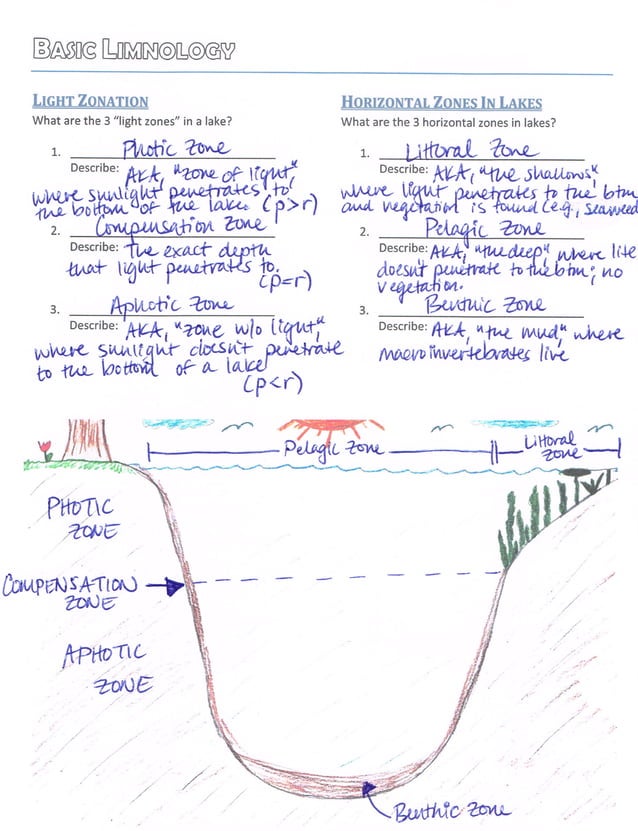 BASIC LIMNOLOGY
LIGHT ZONATION
What are the 3 "light zones" in a lake?
1. Photic Zone
Describe: AKA, "zone of light",
where sunlight penetrates to
the bottom of the lake. (p>r)
2. Compensation Zone
Describe: The exact depth
that light penetrates to.
(p=r)
3. Aphotic Zone
Describe: AKA, "zone w/o light",
where sunlight doesn't penetrate
to the bottom of a lake
(p<r)
HORIZONTAL ZONES IN LAKES
What are the 3 horizontal zones in lakes?
1. Littoral Zone
Describe: AKA, "the shallows"
where light penetrates to the btm
and vegetation is found (e.g., seaweed
2. Pelagic Zone
Describe: AKA, "the deep" where lite
doesn't penetrate to the btm; no
vegetation.
3. Benthic Zone
Describe: AKA, "the mud," where
macroinvertebrates live
Pelagic Zone
Littoral
Zone
PHOTIC
ZONE
COMPENSATION
ZONE
APHOTIC
ZONE
Benthic Zone